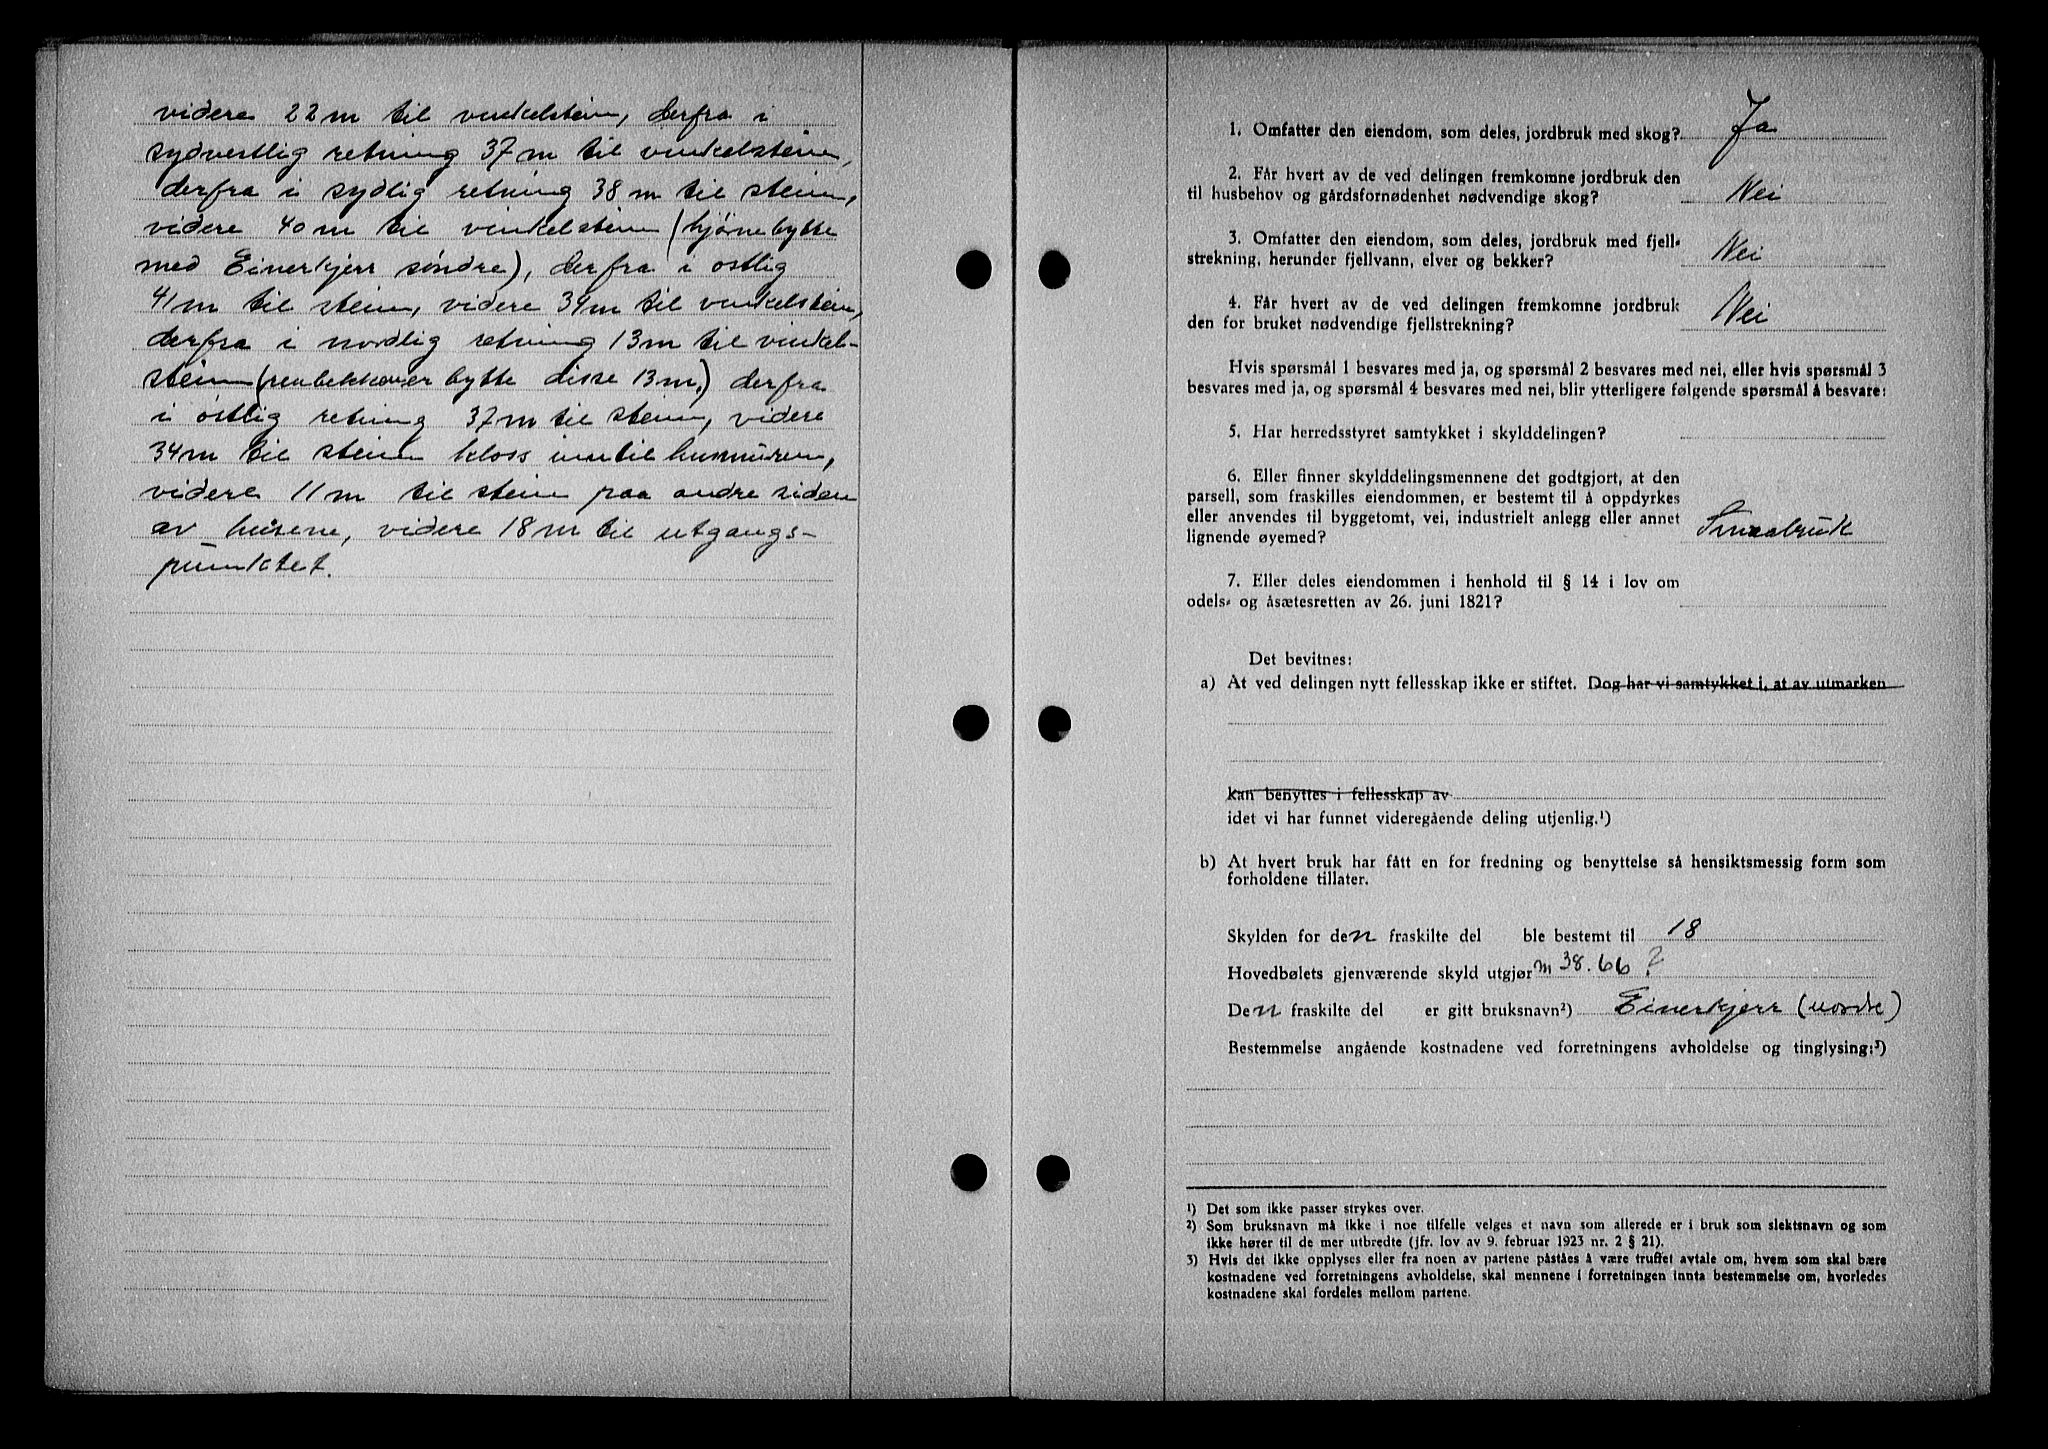 videre 22 m til vinkelstein, derfra i
sydvestlig retning 37 m til vinkelstein,
derfra i sydlig retning 38 m til stein,
videre 40 m til vinkelstein (hjørnebytte
med Einerkjerr søndre), derfra i østlig
41 m til stein, videre 34 m til vinkelstein,
derfra i nordlig retning 13 m til vinkel-
stein bytte disse 13 m.) derfra
i østlig retning 37 m til stein, videre
34 m til stein kloss inntil husmuren,
videre 11 m til stein paa andre siden
av husene, videre 18 m til utgangs-
punktet.
1. Omfatter den eiendom, som deles, jordbruk med skog? Ja
2. Får hvert av de ved delingen fremkomne jordbruk den
til husbehov og gårdsfornødenhet nødvendige skog? Nei
3. Omfatter den eiendom, som deles, jordbruk med fjell-
strekning, herunder fjellvann, elver og bekker? Nei
4. Får hvert av de ved delingen fremkomne jordbruk
den for bruket nødvendige fjellstrekning? Nei
Hvis spørsmål 1 besvares med ja, og spørsmål 2 besvares med nei, eller hvis spørsmål 3
besvares med ja, og spørsmål 4 besvares med nei, blir ytterligere følgende spørsmål å besvare:
5. Har herredsstyret samtykket i skylddelingen?
6. Eller finner skylddelingsmennene det godtgjort, at den
parsell, som fraskilles eiendommen, er bestemt til å oppdyrkes
eller anvendes til byggetomt, vei, industrielt anlegg eller annet
lignende øyemed? Smaabruk
7. Eller deles eiendommen i henhold til § 14 i lov om
odels- og åsætesretten av 26. juni 1821?
Det bevitnes:
a) At ved delingen nytt fellesskap ikke er stiftet. Dog har vi samtykket i, at av utmarken
kan benyttes i fellesskap av
idet vi har funnet videregående deling utjenlig.¹)
b) At hvert bruk har fått en for fredning og benyttelse så hensiktsmessig form som
forholdene tillater.
Skylden for den fraskilte del ble bestemt til 18
Hovedbølets gjenværende skyld utgjør m 38.66 ?
Den fraskilte del er gitt bruksnavn²) Einerkjerr (nordre)
Bestemmelse angående kostnadene ved forretningens avholdelse og tinglysing:³)
¹) Det som ikke passer strykes over.
²) Som bruksnavn må ikke i noe tilfelle velges et navn som allerede er i bruk som slektsnavn og som
ikke hører til de mer utbredte (jfr. lov av 9. februar 1923 nr. 2 § 21).
³) Hvis det ikke opplyses eller fra noen av partene påståes å være truffet avtale om, hvem som skal bære
kostnadene ved forretningens avholdelse, skal mennene i forretningen innta bestemmelse om, hvorledes
kostnadene skal fordeles mellom partene.